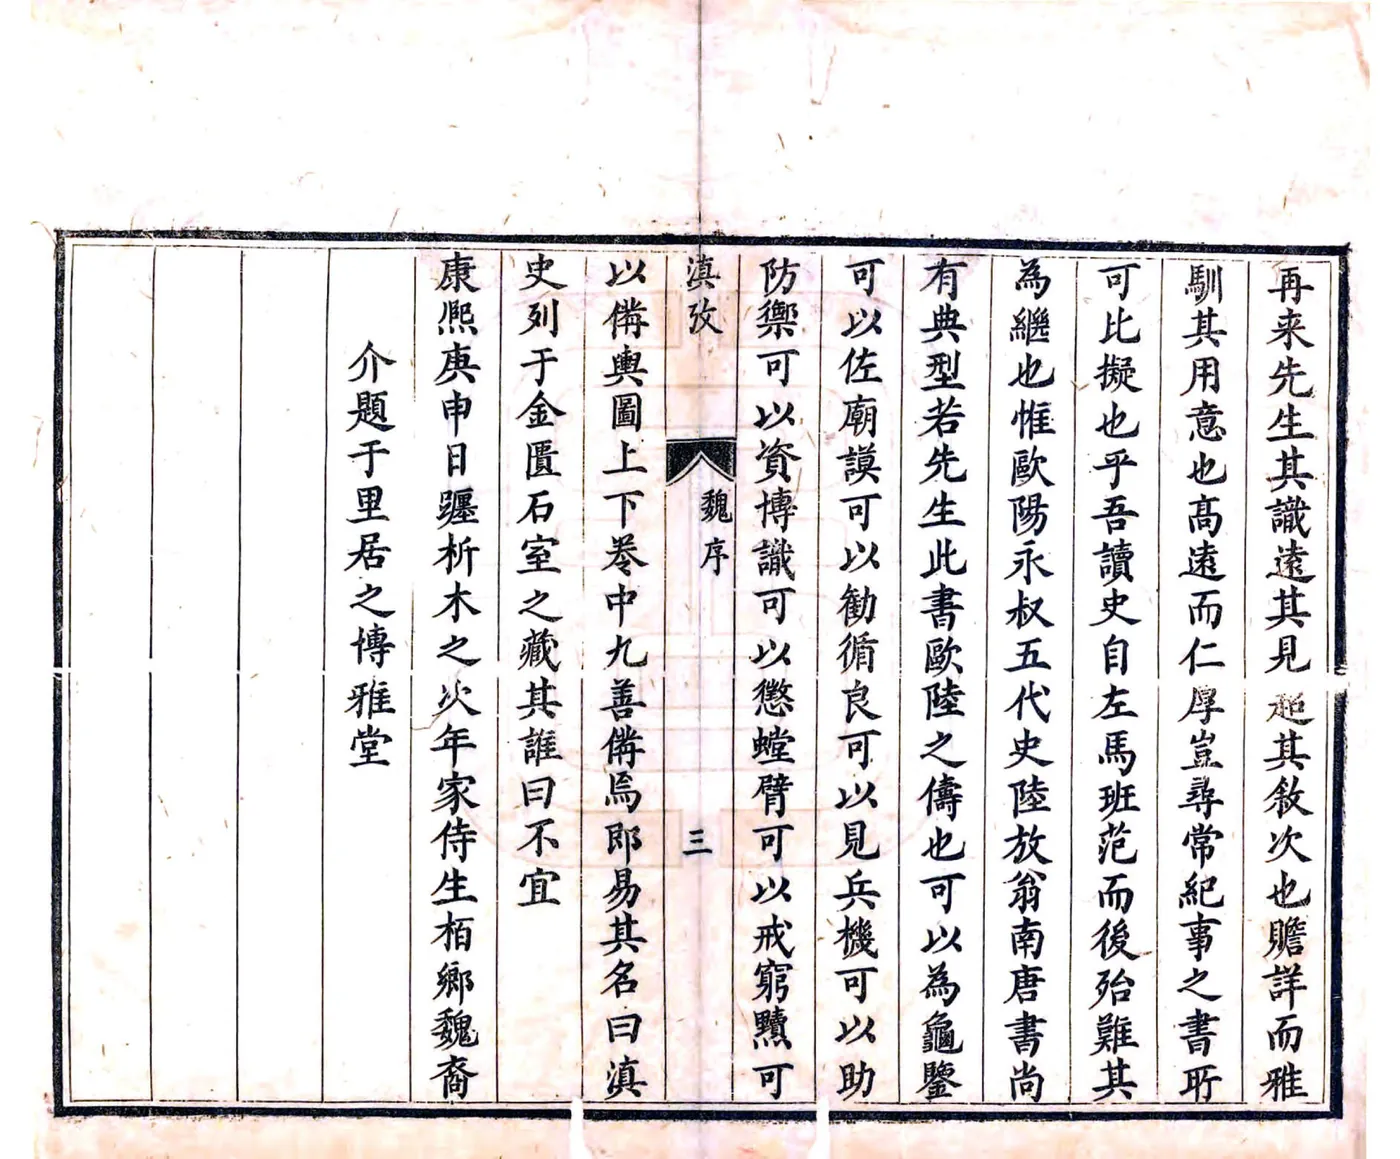 再来先生其識遠其見超其敘次也贍詳而雅
馴其用意也髙遠而仁厚豈尋常紀事之書所
可比擬也乎吾讀史自左馬班范而後殆難其
為繼也惟歐陽永叔五代史陸放翁南唐書尚
有典型若先生此書歐陸之儔也可以為龜鑒
可以佐廟謨可以勸循良可以見兵機可以助
防禦可以資博識可以懲螳臂可以戒窮黷可
滇攷
魏序
三
以備輿圖上下卷中九善備焉郎易其名曰滇
史列于金匱石室之藏其誰曰不宜
康熈庚申日躔析木之次年家侍生栢鄉魏裔
介題于里居之博雅堂